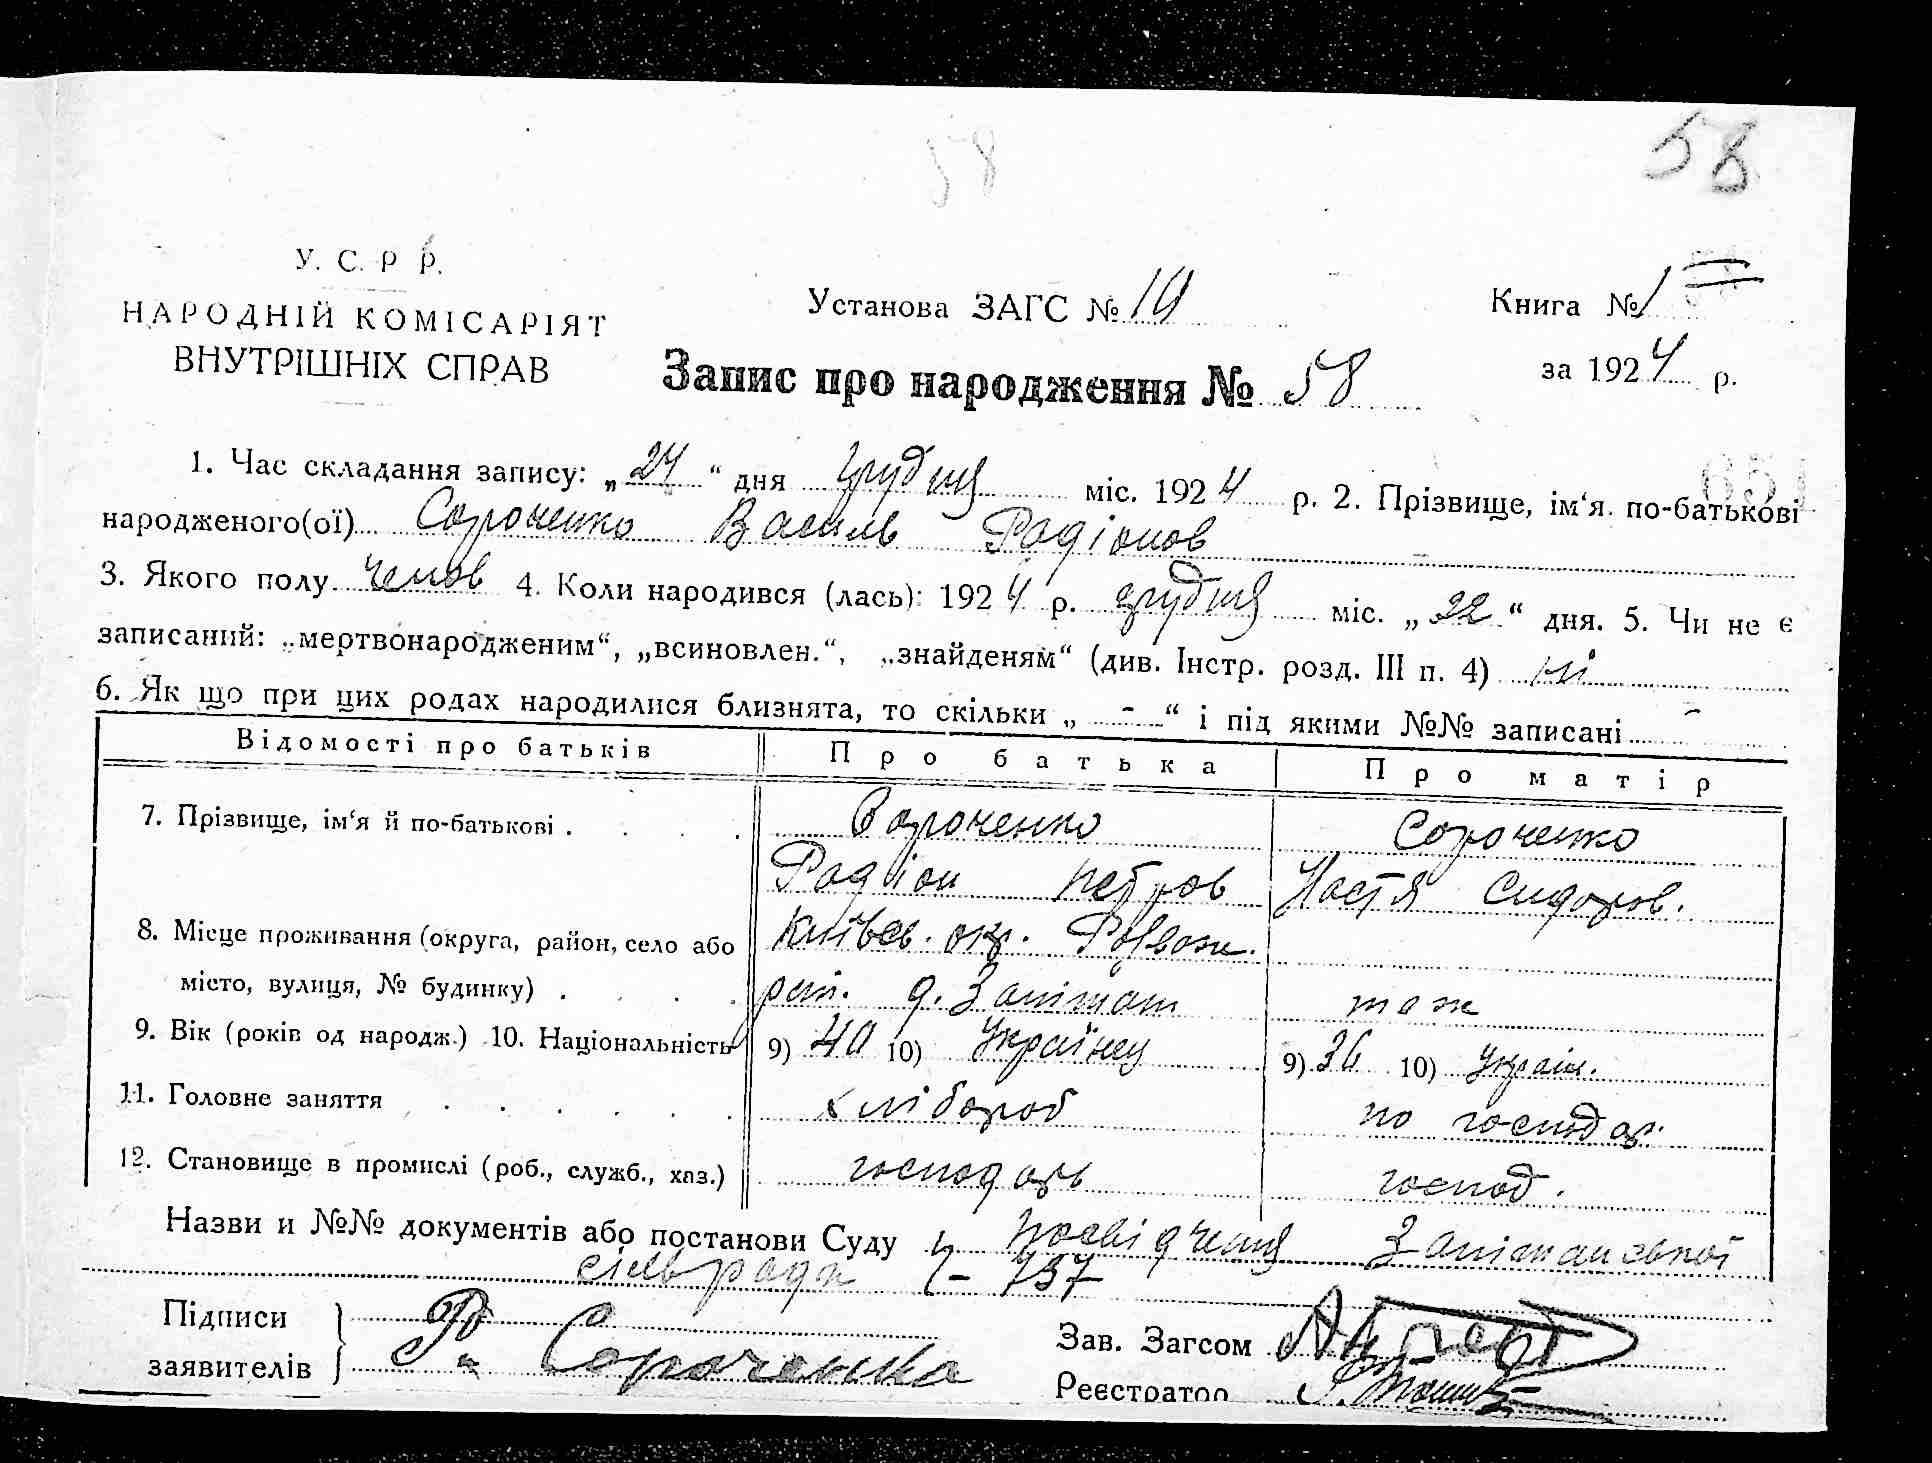 58
58
У. С. Р Р.
НАРОДНІЙ КОМІСАРІЯТ
ВНУТРІШНІХ СПРАВ
Установа ЗАГС № 19
Книга № 1
за 1924 р.
Запис про народження № 58
651
1. Час складання запису: „24“ дня грудня міс. 1924 р. 2. Прізвище, ім‘я. по-батькові
народженого(ої) Сороченко Василь Радіонов
3. Якого полу чолов 4. Коли народився (лась): 1924 р. грудня міс. „22“ дня. 5. Чи не є
записаний: „мертвонародженим“, „всиновлен.“, „знайденям“ (див. Інстр. розд. III п. 4) ні
6. Як що при цих родах народилися близнята, то скільки „ - “ і під якими №№ записані -
Відомості про батьків Про батька Про матір
7. Прізвище, ім‘я й по-батькові . . . . Сороченко Сороченко
Радіон Петров Настя Сидоров.
8. Місце проживання (округа, район, село або Київсь. окр. Розваж.
місто, вулиця, № будинку) . . . . рай. д. Запітат тож
9. Вік (років од народж.) 10. Національність 9) 40 10) Українец 9) 36 10) Україн.
11. Головне заняття . . . . . . хлібороб по господар.
12. Становище в промислі (роб., служб., хаз.) господарь господ.
Назви и №№ документів або постанови Суду Посвідчення
сільради 737
Підписи
заявителів
Р. Сороченко
Зав. Загсом
Реєстратор